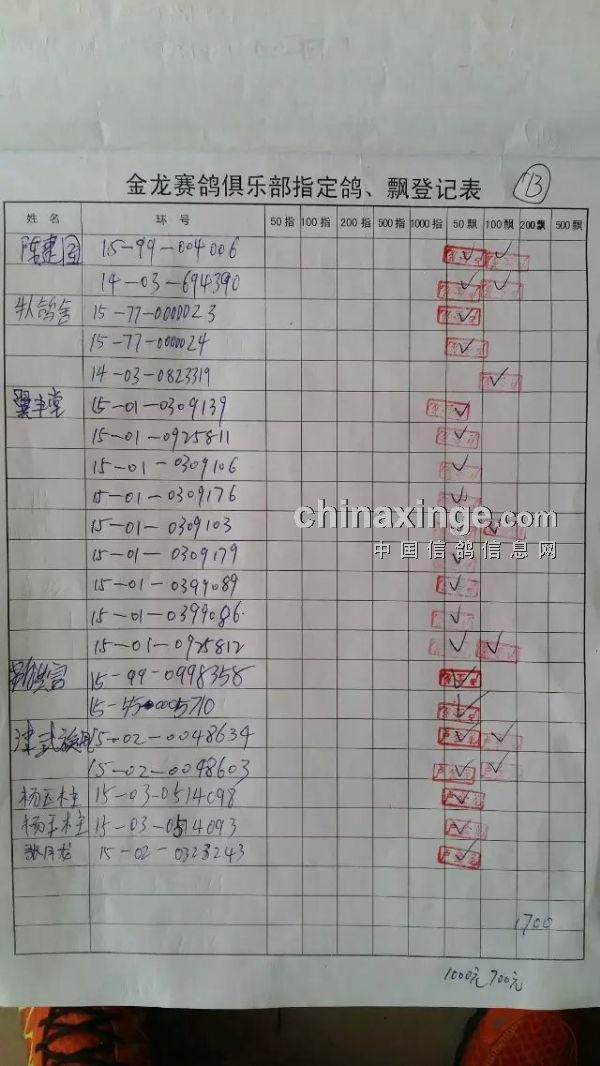 金龙赛鸽俱乐部指定鸽、飘登记表 13
姓名 环号 50指 100指 200指 500指 1000指 50飘 100飘 200飘 500飘
陈建国 15-99-004006 ✓ ✓
14-03-694390 ✓ ✓
15-77-0000023 ✓
15-77-0000024 ✓
14-03-0823319 ✓
翼丰堂 15-01-0309139 ✓
15-01-0925811 ✓
15-01-0309106 ✓
15-01-0309176 ✓
15-01-0309103 ✓ ✓
15-01-0309179 ✓
15-01-0399089 ✓
15-01-0399086 ✓
15-01-0925812 ✓ ✓
15-99-0998358 ✓
✓
15-02-0048634 ✓ ✓
15-02-0098603 ✓ ✓
杨玉柱 15-03-0514098 ✓
杨玉柱 15-03-0514093 ✓
15-02-0323243 ✓
1700
1000元 700元
chinaxinge.com
中国信鸽信息网